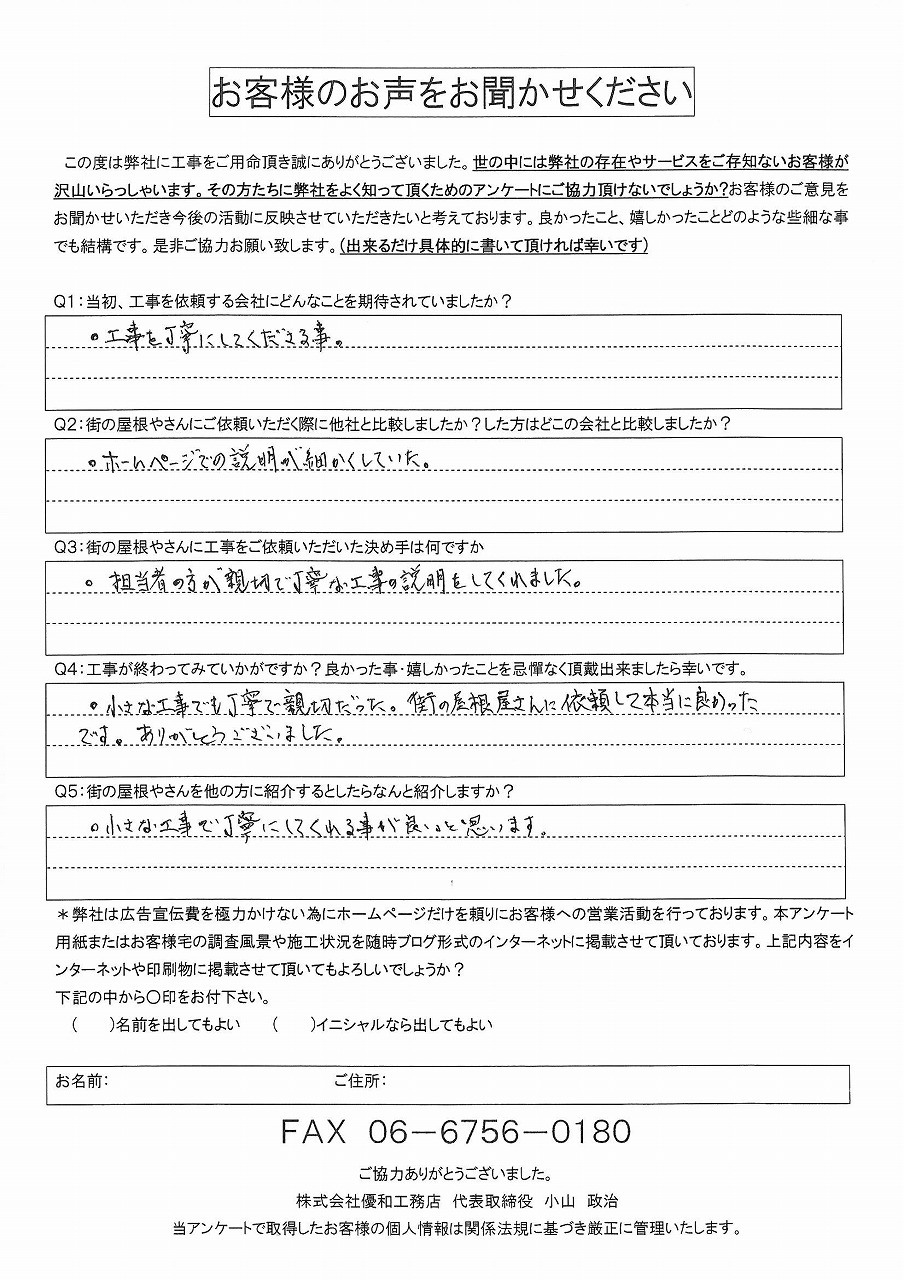 お客様のお声をお聞かせください
この度は弊社に工事をご用命頂き誠にありがとうございました。世の中には弊社の存在やサービスをご存知ないお客様が
沢山いらっしゃいます。その方たちに弊社をよく知って頂くためのアンケートにご協力頂けないでしょうか？お客様のご意見を
お聞かせいただき今後の活動に反映させていただきたいと考えております。良かったこと、嬉しかったことどのような些細な事
でも結構です。是非ご協力お願い致します。（出来るだけ具体的に書いて頂ければ幸いです）
Q1：当初、工事を依頼する会社にどんなことを期待されていましたか？
○工事を丁寧にしてくださる事。
Q2：街の屋根やさんにご依頼いただく際に他社と比較しましたか？した方はどこの会社と比較しましたか？
○ホームページでの説明が細かくしていた。
Q3：街の屋根やさんに工事をご依頼いただいた決め手は何ですか
○ 担当者の方が親切で丁寧な工事の説明をしてくれました。
Q4：工事が終わってみていかがですか？良かった事・嬉しかったことを忌憚なく頂戴出来ましたら幸いです。
○小さな工事でも丁寧で親切だった。街の屋根屋さんに依頼して本当に良かった
です。ありがとうございました。
Q5：街の屋根やさんを他の方に紹介するとしたらなんと紹介しますか？
○小さな工事で丁寧にしてくれる事が良いと思います。
＊弊社は広告宣伝費を極力かけない為にホームページだけを頼りにお客様への営業活動を行っております。本アンケート
用紙またはお客様宅の調査風景や施工状況を随時ブログ形式のインターネットに掲載させて頂いております。上記内容をイ
ンターネットや印刷物に掲載させて頂いてもよろしいでしょうか？
下記の中から○印をお付下さい。
（　　）名前を出してもよい　　（　　）イニシャルなら出してもよい
お名前：　　ご住所：
FAX 06－6756－0180
ご協力ありがとうございました。
株式会社優和工務店　代表取締役　小山　政治
当アンケートで取得したお客様の個人情報は関係法規に基づき厳正に管理いたします。